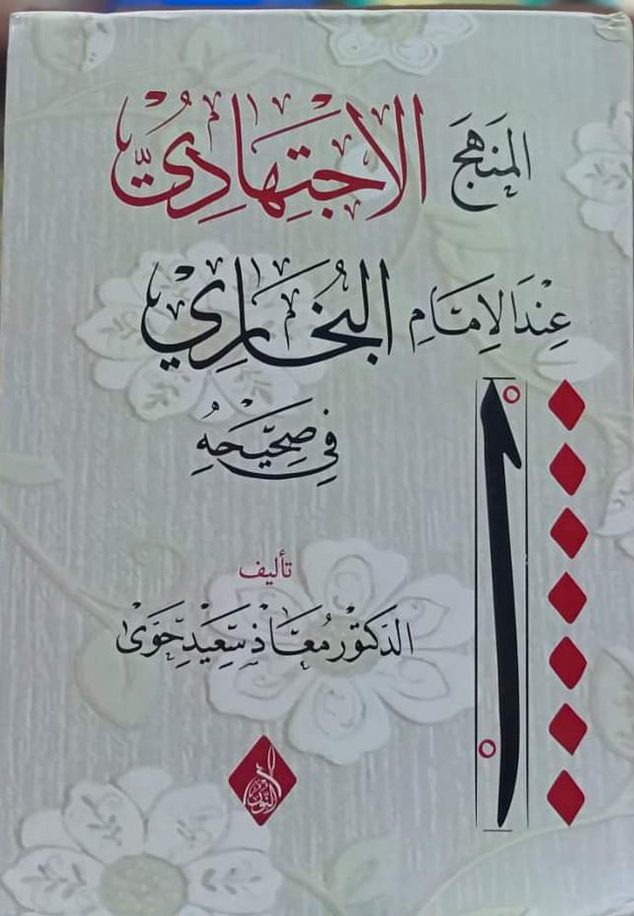 المَنهَج الاجتِهادِيّ
عِنْدَ الإِمَامِ البُخَارِي
فِي صَحِيْحِهِ
تأليف
الدَّكتوْر مُعَاذ سَعِيْد حَوّى